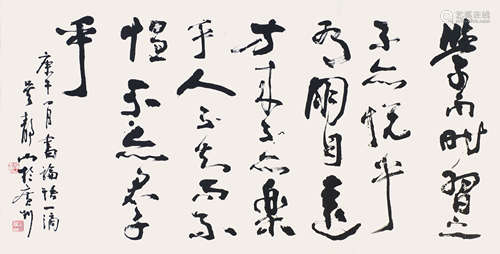 學而時習之
不亦悅乎
有朋自遠
方來不亦樂
乎人不知而不
慍不亦君子
乎
庚午一月書論語一滴
於廣州
易拍全球